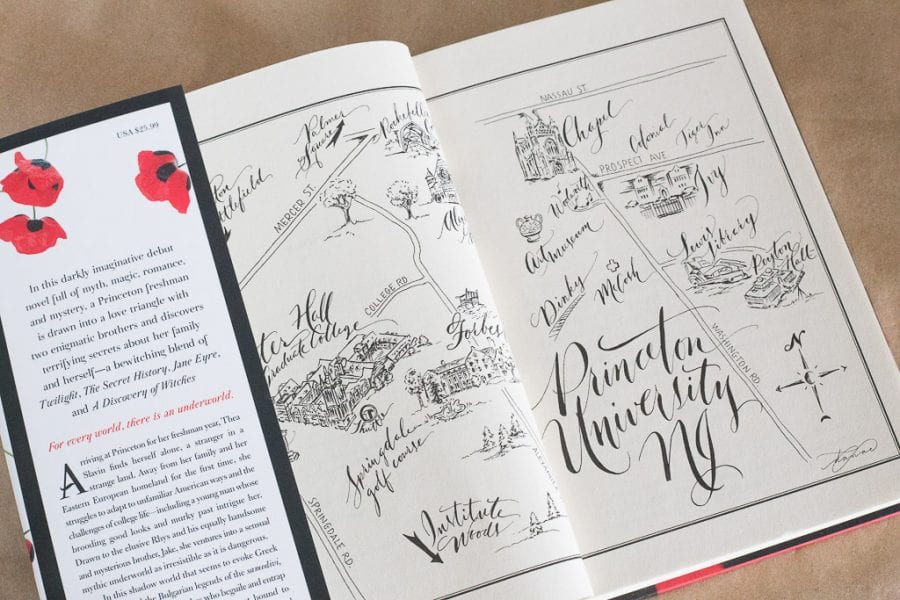 USA $25.99
In this darkly imaginative debut
novel full of myth, magic, romance,
and mystery, a Princeton freshman
is drawn into a love triangle with
two enigmatic brothers and discovers
terrifying secrets about her family
and herself—a bewitching blend of
Twilight, The Secret History, Jane Eyre,
and A Discovery of Witches
For every world, there is an underworld.
Arriving at Princeton for her freshman year, Thea
Slavin finds herself alone, a stranger in a
strange land. Away from her family and her
Eastern European homeland for the first time, she
struggles to adapt to unfamiliar American ways and the
challenges of college life—including a young man whose
brooding good looks and murky past intrigue her.
Drawn to the elusive Rhys and his equally handsome
and mysterious brother, Jake, she ventures into a sensual
mythic underworld as irresistible as it is dangerous.
In this shadow world that seems to evoke Greek
the Bulgarian legends of the samodivi,
who beguile and entrap
bound to
Palmer
House
MERCER ST.
COLLEGE RD
Graduate College
Forbes
Springdale
golf course
SPRINGDALE RD
Institute
Woods
NASSAU ST.
Chapel
Colonial
Tiger
Inn
PROSPECT AVE
Ivy
Art museum
Lewis
library
Peyton
Hall
Dinky
McCosh
WASHINGTON RD
Princeton
University
NJ
N